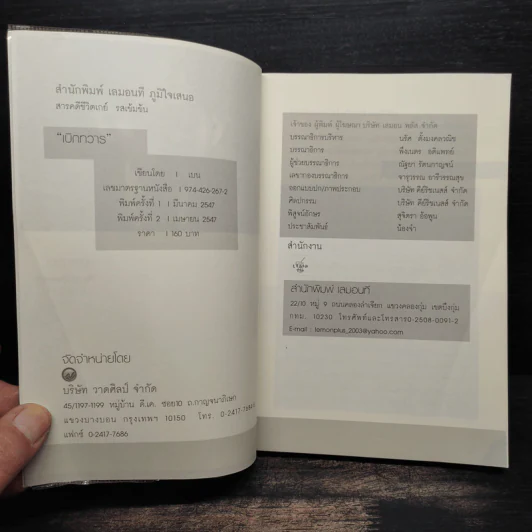 สำนักพิมพ์ เลมอนที ภูมิใจเสนอ
สารคดีชีวิตเกย์ รสเข้มข้น
"เบิกทวาร"
เขียนโดย | เบน
เลขมาตรฐานหนังสือ | 974-426-267-2
พิมพ์ครั้งที่ 1 | มีนาคม 2547
พิมพ์ครั้งที่ 2 | เมษายน 2547
ราคา | 160 บาท
จัดจำหน่ายโดย
บริษัท วาดศิลป์ จำกัด
45/1197-1199 หมู่บ้าน ดี.เค. ซอย10 ถ.กาญจนาภิเษก
แขวงบางบอน กรุงเทพฯ 10150 โทร. 0-2417-7684
แฟกซ์ 0-2417-7686
เจ้าของ ผู้พิมพ์ ผู้โฆษณา บริษัท เลมอน พลัส จำกัด
บรรณาธิการบริหาร
บรรณาธิการ
ผู้ช่วยบรรณาธิการ
เลขากองบรรณาธิการ
ออกแบบปก/ภาพประกอบ บริษัท ดีย์รีชเนสส์ จำกัด
ศิลปกรรม บริษัท ดีย์รีชเนสส์ จำกัด
พิสูจน์อักษร สุจิตรา
ประชาสัมพันธ์ น้องจ๋า
สำนักงาน
สำนักพิมพ์ เลมอนที
22/10 หมู่ 9 ถนนคลองลำเจียก แขวงคลองกุ่ม เขตบึงกุ่ม
กทม. 10230 โทรศัพท์และโทรสาร0-2508-0091-2
E-mail : lemonplus_2003@yahoo.com